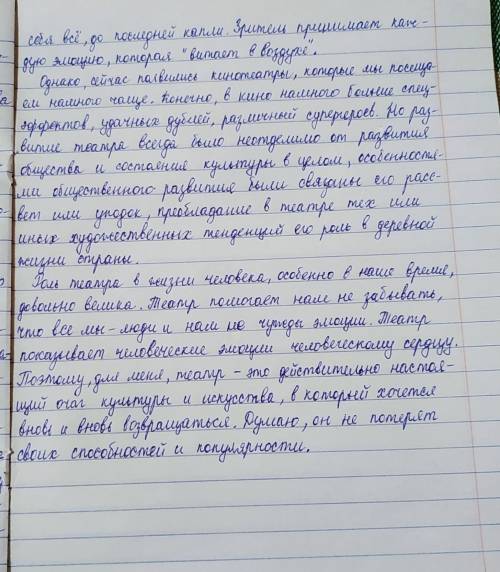 себя всё, до последней капли. Зритель принимает каж-
дую эмоцию, которая "витает в воздухе".
Однако, сейчас появились кинотеатры, которые мы посеща-
ем намного чаще. Конечно, в кино намного больше спец-
эффектов, удачных дублей, различный супергероев. Но раз-
витие театра всегда было неотделимо от развития
общества и состояния культуры в целом, особенностя-
ми общественного развития были связаны его расс-
вет или упадок, преобладание в театре тех или
иных художественных тенденций его роль в деревной
жизни страны.
Роль театра в жизни человека, особенно в наше время,
довольно велика. Театр помогает нам не забывать,
что все мы - люди и нам не чужды эмоции. Театр
показывает человеческие эмоции человеческому сердцу.
Поэтому, для меня, театр - это действительно настоя-
щий очаг культуры и искусства, в который хочется
вновь и вновь возвращаться. Думаю, он не потеряет
своих способностей и популярности.